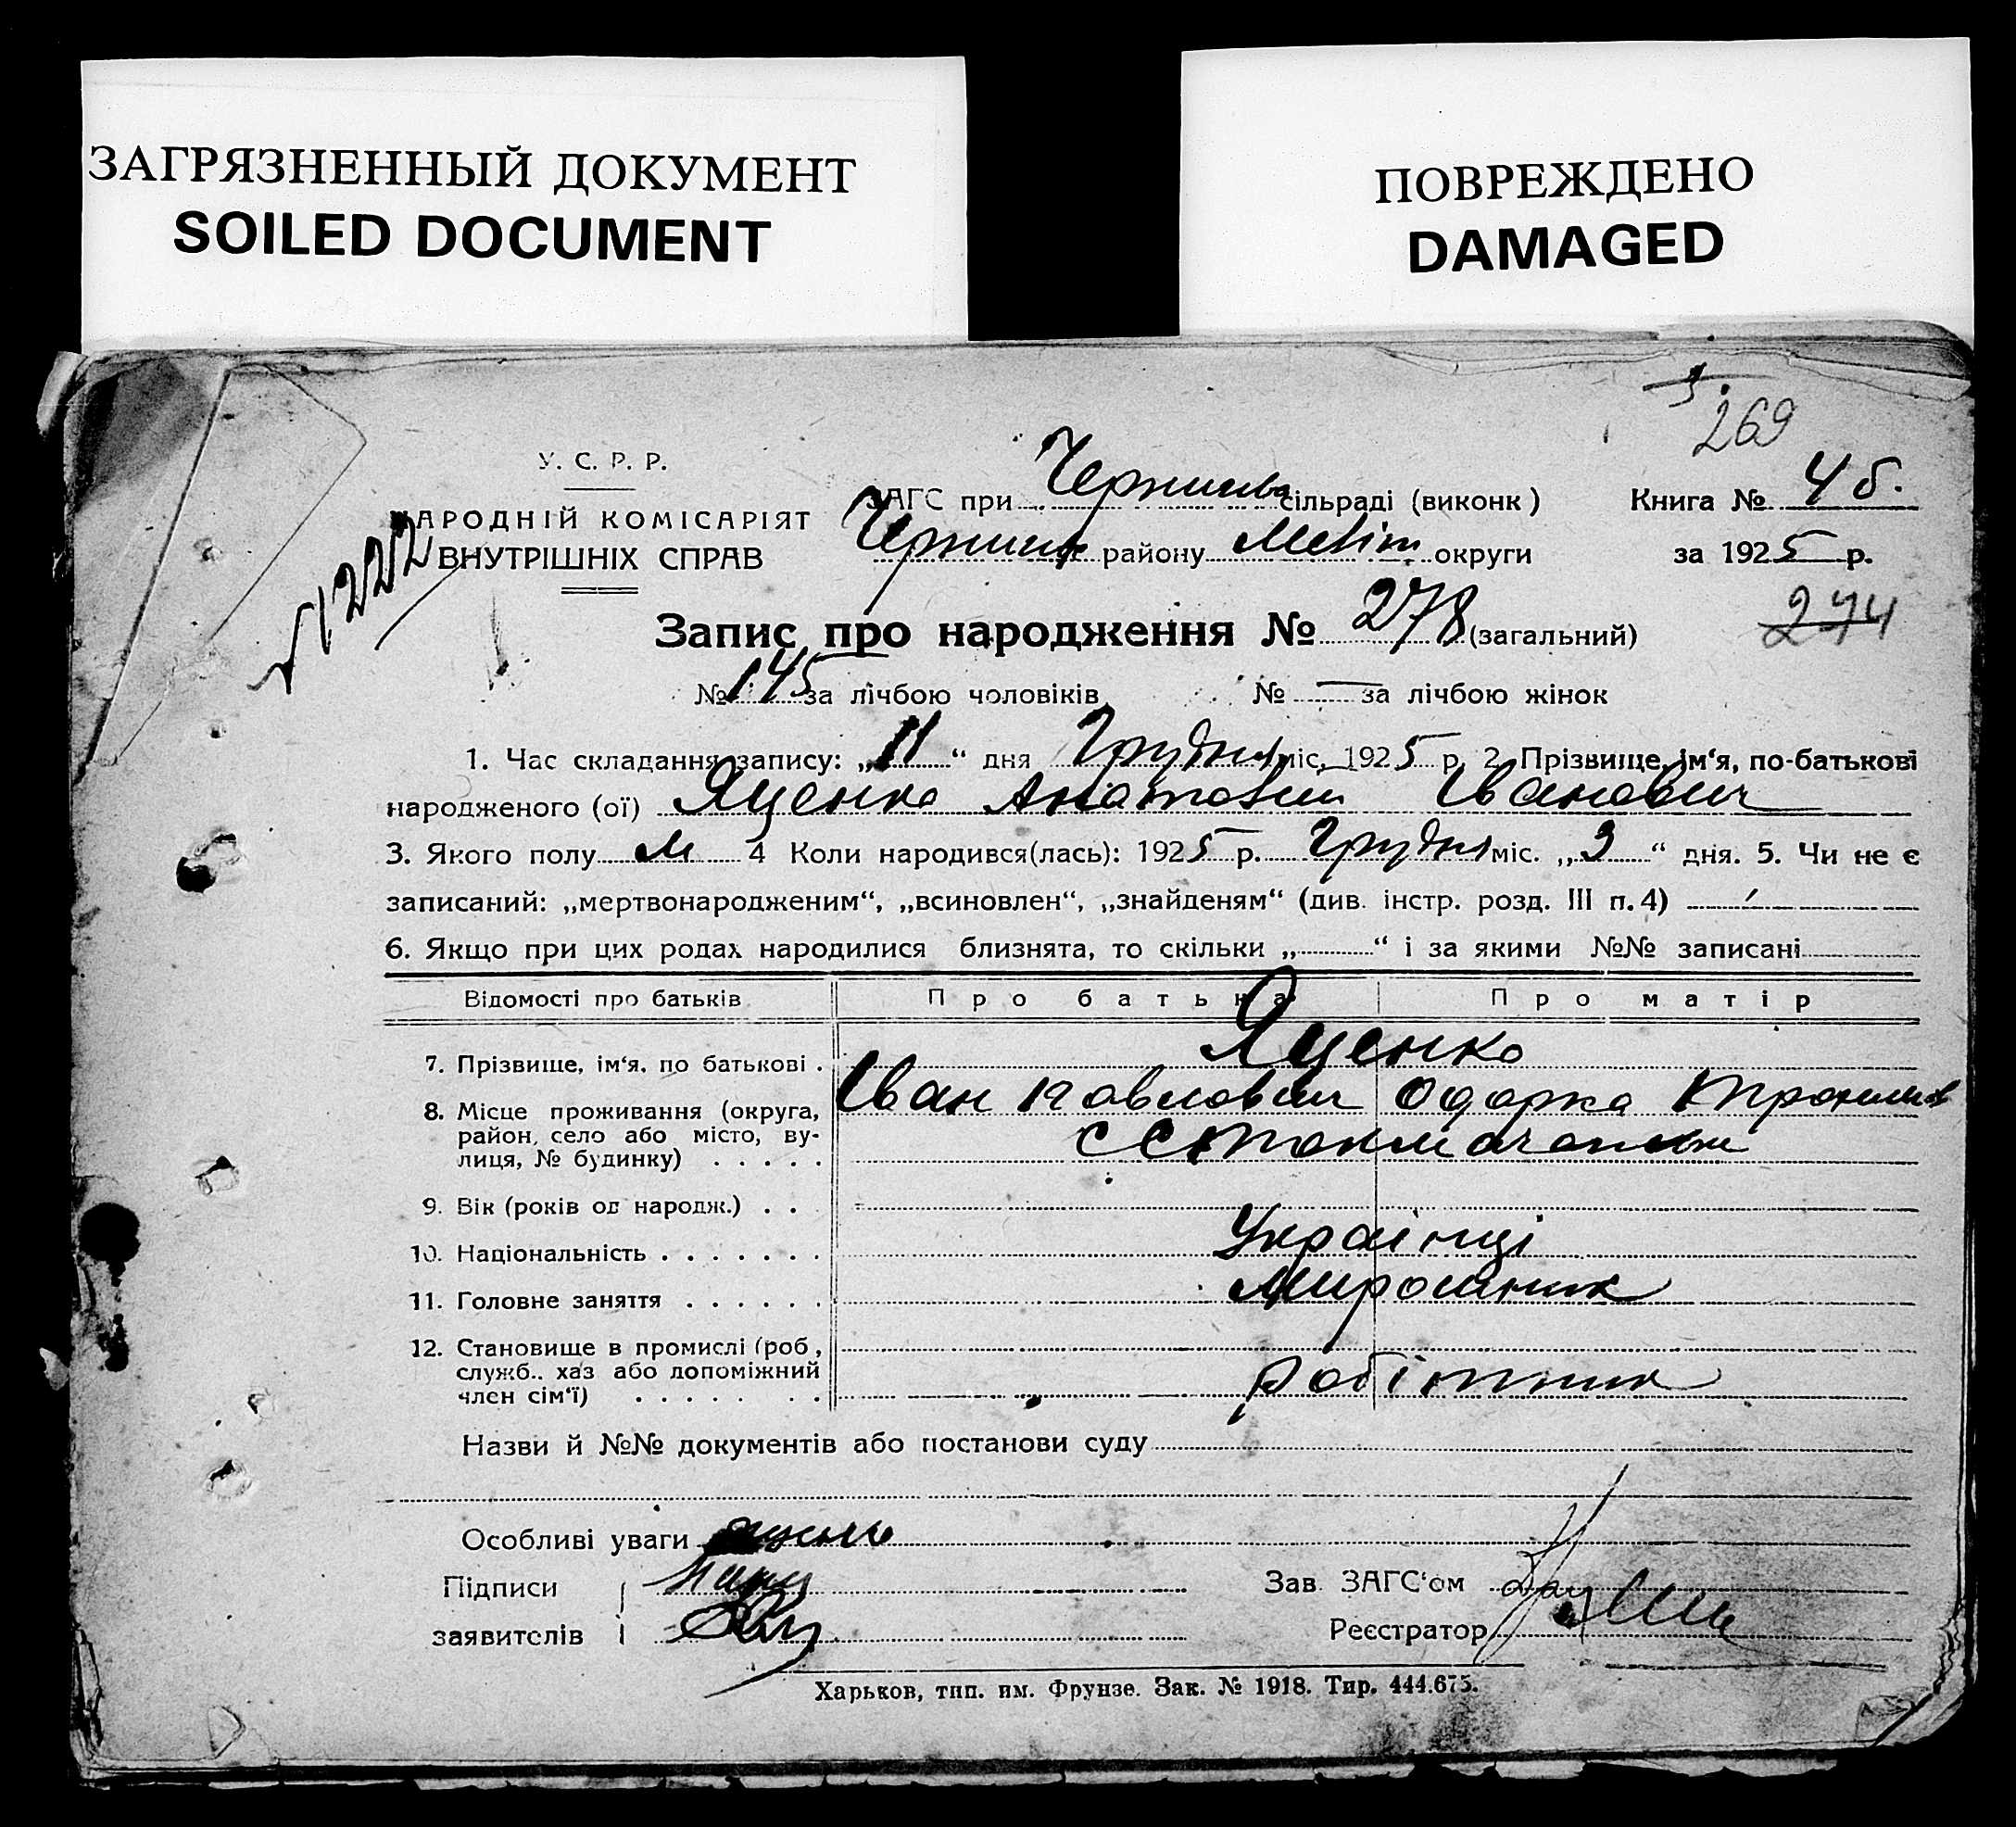 ЗАГРЯЗНЕННЫЙ ДОКУМЕНТ
SOILED DOCUMENT
ПОВРЕЖДЕНО
DAMAGED
269
У. С. Р. Р.
НАРОДНІЙ КОМІСАРІЯТ
ВНУТРІШНІХ СПРАВ
1222
ЗАГС при сільраді (виконк)
Книга № 4 б.
району Меліт округи
за 1925 р.
Запис про народження № 278 (загальний)
274
№ 145 за лічбою чоловіків № — за лічбою жінок
1. Час складання запису: „11“ дня Грудня міс. 1925 р. 2. Прізвище, ім‘я, по-батькові
народженого (ої) Яценко Анатолий Іванович
3. Якого полу м 4 Коли народився(лась): 1925 р. Грудня міс. „9“ дня. 5. Чи не є
записаний: „мертвонародженим“, „всиновлен“, „знайденям“ (див. інстр. розд. III п. 4)
6. Якщо при цих родах народилися близнята, то скільки „ “ і за якими №№ записані
Відомості про батьків Про батька Про матір
7. Прізвище, ім‘я, по батькові . Яценко
Іван Павлович Одарка
8. Місце проживання (округа,
район, село або місто, ву-
лиця, № будинку) . . . . .
9. Вік (років од народж.) . .
10. Національність . . . . . . . Українці
11. Головне заняття . . . . . . Мирошник
12. Становище в промислі (роб.,
служб., хаз або допоміжний
член сім‘ї) . . . . . . . робітник
Назви й №№ документів або постанови суду
Особливі уваги
Підписи
заявителів
Зав. ЗАГС‘ом
Реєстратор
Харьков, тип. им. Фрунзе. Зак. № 1918. Тир. 444.675.